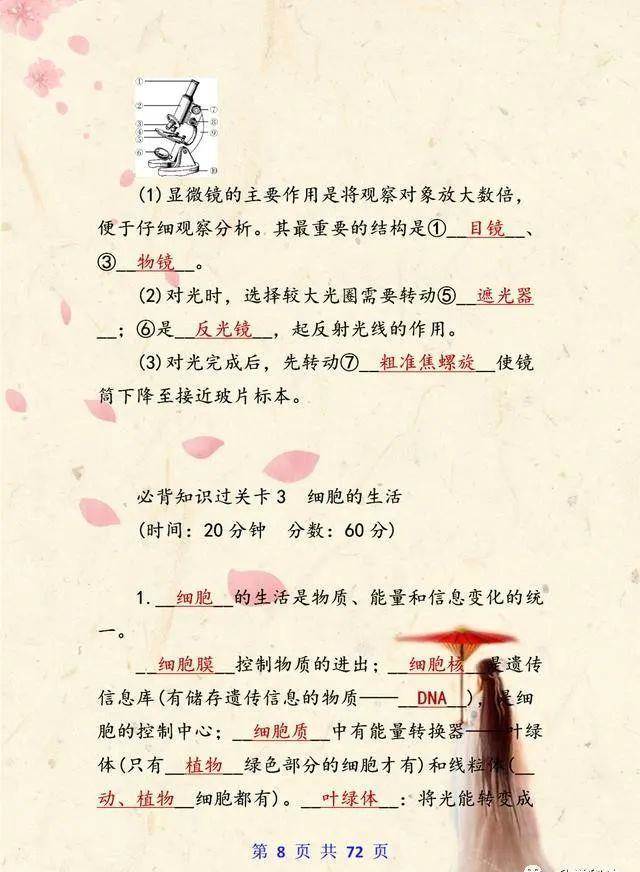 ①
②
③
④
⑤
⑥
⑦
⑧
⑨
⑩
(1)显微镜的主要作用是将观察对象放大数倍，
便于仔细观察分析。其最重要的结构是①__目镜__、
③__物镜__。
(2)对光时，选择较大光圈需要转动⑤__遮光器
__；⑥是__反光镜__，起反射光线的作用。
(3)对光完成后，先转动⑦__粗准焦螺旋__使镜
筒下降至接近玻片标本。
必背知识过关卡3 细胞的生活
(时间：20分钟 分数：60分)
1.__细胞__的生活是物质、能量和信息变化的统
一。
__细胞膜__控制物质的进出；__细胞核__是遗传
信息库(有储存遗传信息的物质——__DNA__)，是细
胞的控制中心；__细胞质__中有能量转换器——叶绿
体(只有__植物__绿色部分的细胞才有)和线粒体(__
动、植物__细胞都有)。__叶绿体__：将光能转变成
第 8 页 共 72 页